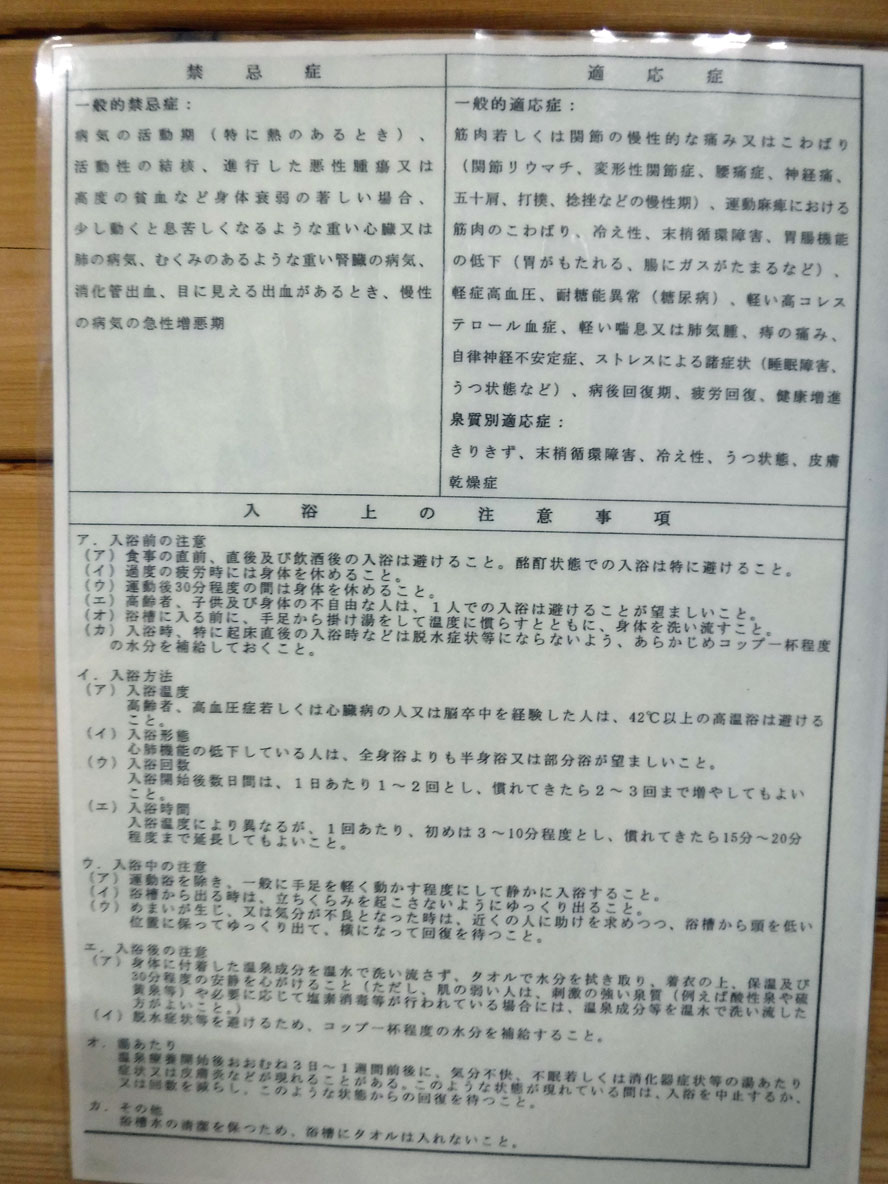 禁忌症
一般的禁忌症：
病気の活動期（特に熱のあるとき）、
活動性の結核、進行した悪性腫瘍又は
高度の貧血など身体衰弱の著しい場合、
少し動くと息苦しくなるような重い心臓又は
肺の病気、むくみのあるような重い腎臓の病気、
消化管出血、目に見える出血があるとき、慢性
の病気の急性増悪期
適応症
一般的適応症：
筋肉若しくは関節の慢性的な痛み又はこわばり
（関節リウマチ、変形性関節症、腰痛症、神経痛、
五十肩、打撲、捻挫などの慢性期）、運動麻痺における
筋肉のこわばり、冷え性、末梢循環障害、胃腸機能
の低下（胃がもたれる、腸にガスがたまるなど）、
軽症高血圧、耐糖能異常（糖尿病）、軽い高コレス
テロール血症、軽い喘息又は肺気腫、痔の痛み、
自律神経不安定症、ストレスによる諸症状（睡眠障害、
うつ状態など）、病後回復期、疲労回復、健康増進
泉質別適応症：
きりきず、末梢循環障害、冷え性、うつ状態、皮膚
乾燥症
入浴上の注意事項
ア．入浴前の注意
（ア）食事の直前、直後及び飲酒後の入浴は避けること。酩酊状態での入浴は特に避けること。
（イ）過度の疲労時には身体を休めること。
（ウ）運動後30分程度の間は身体を休めること。
（エ）高齢者、子供及び身体の不自由な人は、１人での入浴は避けることが望ましいこと。
（オ）浴槽に入る前に、手足から掛け湯をして温度に慣らすとともに、身体を洗い流すこと。
（カ）入浴時、特に起床直後の入浴時などは脱水症状等にならないよう、あらかじめコップ一杯程度
の水分を補給しておくこと。
イ．入浴方法
（ア）入浴温度
高齢者、高血圧症若しくは心臓病の人又は脳卒中を経験した人は、42℃以上の高温浴は避ける
こと。
（イ）入浴形態
心肺機能の低下している人は、全身浴よりも半身浴又は部分浴が望ましいこと。
（ウ）入浴回数
入浴開始後数日間は、１日あたり１～２回とし、慣れてきたら２～３回まで増やしてもよい
こと。
（エ）入浴時間
入浴温度により異なるが、１回あたり、初めは３～10分程度とし、慣れてきたら15分～20分
程度まで延長してもよいこと。
ウ．入浴中の注意
（ア）運動浴を除き、一般に手足を軽く動かす程度にして静かに入浴すること。
（イ）浴槽から出る時は、立ちくらみを起こさないようにゆっくり出ること。
（ウ）めまいが生じ、又は気分が不良となった時は、近くの人に助けを求めつつ、浴槽から頭を低い
位置に保ってゆっくり出て、横になって回復を待つこと。
エ．入浴後の注意
（ア）身体に付着した温泉成分を温水で洗い流さず、タオルで水分を拭き取り、着衣の上、保温及び
30分程度の安静を心がけること（ただし、肌の弱い人は、刺激の強い泉質（例えば酸性泉や硫
黄泉等）や必要に応じて塩素消毒等が行われている場合には、温泉成分等を温水で洗い流した
方がよいこと。）
（イ）脱水症状等を避けるため、コップ一杯程度の水分を補給すること。
オ．湯あたり
温泉療養開始後おおむね３日～１週間前後に、気分不快、不眠若しくは消化器症状等の湯あたり
症状又は皮膚炎などが現れることがある。このような状態が現れている間は、入浴を中止するか、
又は回数を減らし、このような状態からの回復を待つこと。
カ．その他
浴槽水の清潔を保つため、浴槽にタオルは入れないこと。